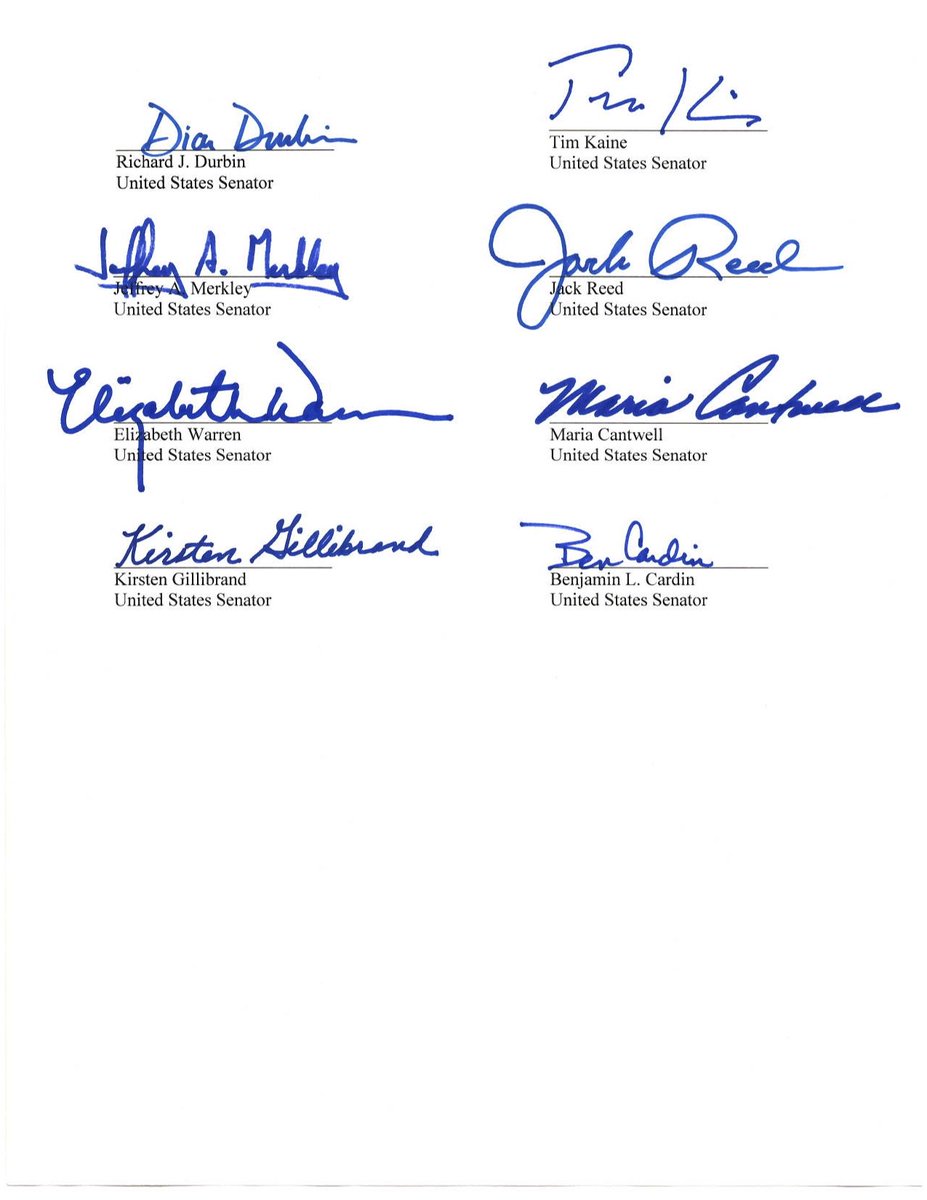 Dick Durbin
Richard J. Durbin
United States Senator
Tim Kaine
Tim Kaine
United States Senator
Jeffrey A. Merkley
Jeffrey A. Merkley
United States Senator
Jack Reed
Jack Reed
United States Senator
Elizabeth Warren
Elizabeth Warren
United States Senator
Maria Cantwell
Maria Cantwell
United States Senator
Kirsten Gillibrand
Kirsten Gillibrand
United States Senator
Ben Cardin
Benjamin L. Cardin
United States Senator